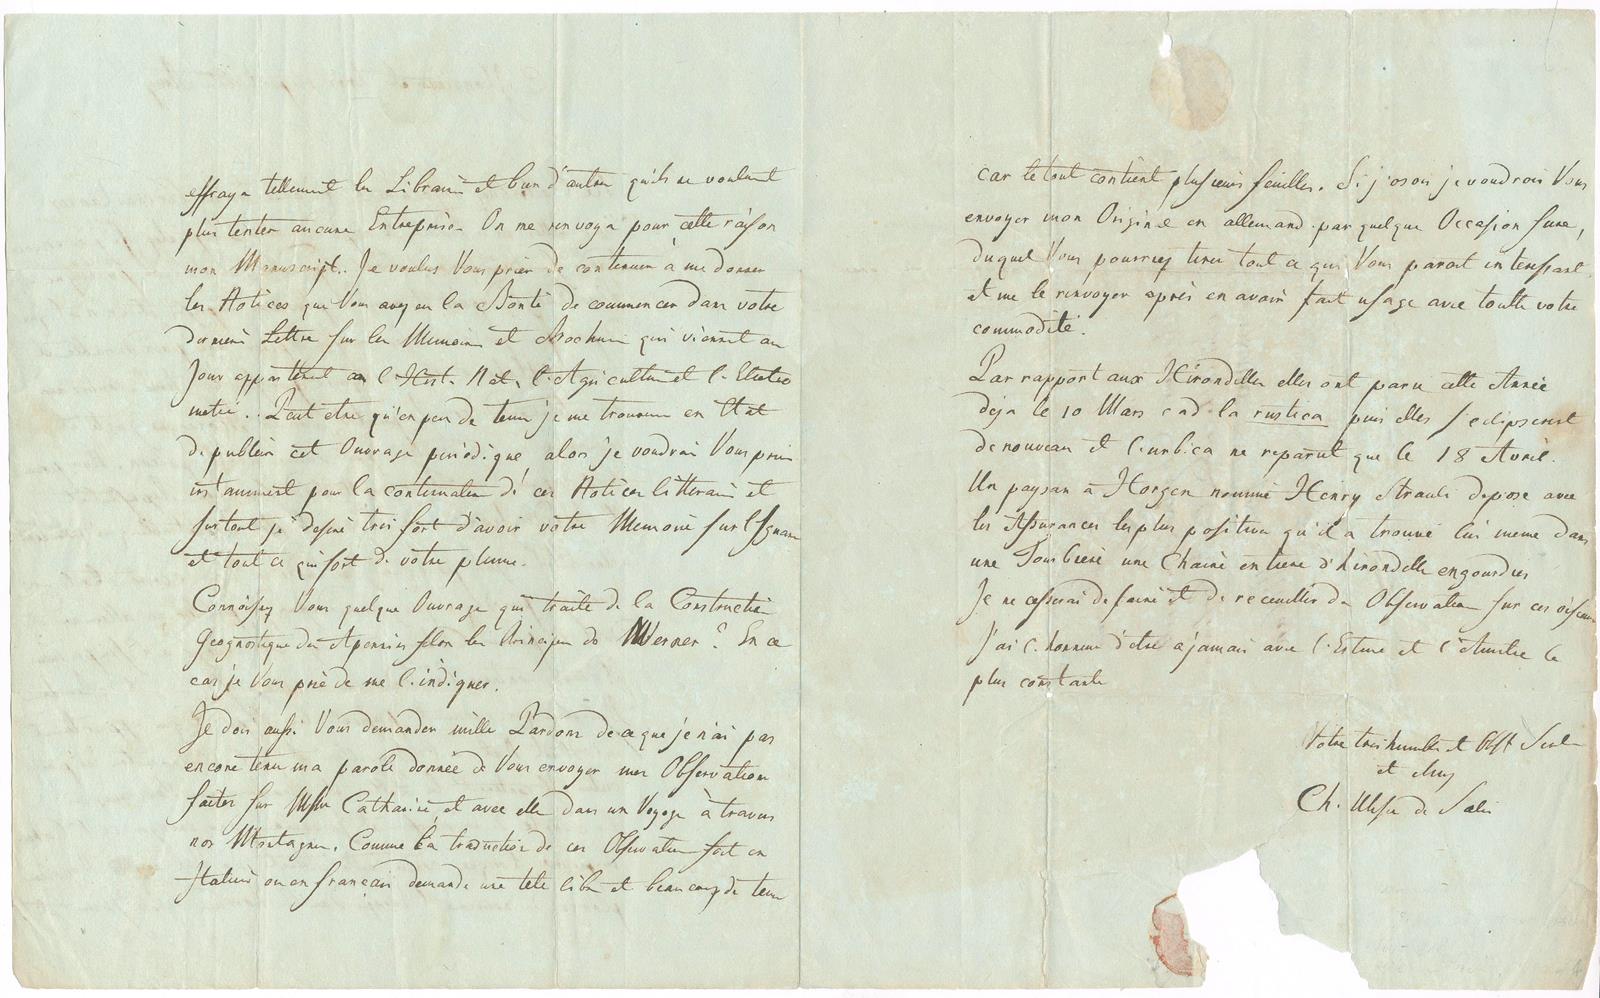 effraya tellement les Libraires et bien d'autres qu'ils ne voulurent
plus tenter aucune Entreprise. On me renvoya pour cette raison
mon Manuscript. Je voulus Vous prier de continuer à me donner
les Notices que Vous avez eu la Bonté de commencer dans votre
derniere Lettre sur les Memoires et Brochures qui viennent au
Jour appartenant a l'Hist. Nat., l'Agriculture et l'Electro
metrie.. Peut etre qu'en peu de tems je me trouverai en Etat
de publier cet Ouvrage periodique, alors je voudrai Vous prier
instamment pour la continuation de ces Notices litteraires et
surtout je desire tres fort d'avoir votre Memoire sur
et tout ce qui sort de votre plume.
Connoissez Vous quelque Ouvrage qui traite de la Construction
Geognostique des Apennins selon les Principes de Werner? En ce
cas je Vous prie de me l'indiquer.
Je dois aussi Vous demander mille Pardons de ce que je n'ai pas
encore tenu ma parole donnée de Vous envoyer mes Observations
faites sur Catharine, et avec elle dans un Voyage à travers
nos Montagnes. Comme la traduction de ces Observations soit en
Italien ou en français demande une tete libre et beaucoup de tems
car le tout contient plusieurs feuilles. Si j'osois je voudrois Vous
envoyer mon Original en allemand par quelque Occasion sure,
duquel Vous pourriez tirer tout ce qui Vous paroit interessant
et me le renvoyer après en avoir fait usage avec toutte votre
commodité.
Par rapport aux Hirondelles elles ont paru cette Année
deja le 10 Mars c a d la rustica puis elles s'eclipserent
de nouveau et l'urbica ne reparut que le 18 Avril.
Un paysan à Horgen nommé Henry Strauli depose avec
les Assurances les plus positives qu'il a trouvé lui meme dans
une Tourbiere une Chaine entiere d'hirondelles engourdies
Je ne cesserai de faire et de receuillir des Observations sur ces oiseaux
J'ai l'honneur d'etre à jamais avec l'Estime et l'Amitie la
plus constante
Votre tres humble et Obst Serv
et Amy
Ch. Ulysse de Salis